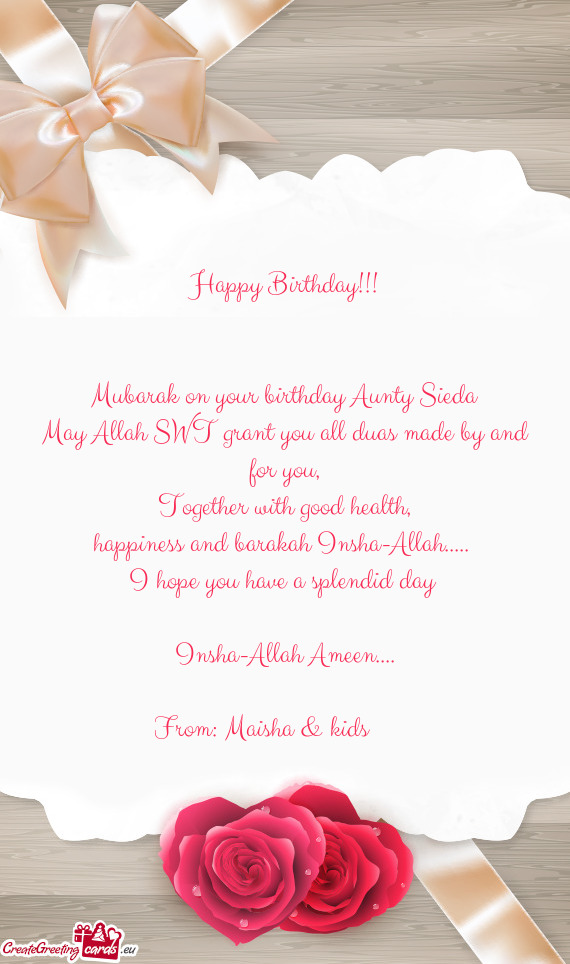 Happy Birthday!!!
Mubarak on your birthday Aunty Sieda
May Allah SWT grant you all duas made by and
for you,
Together with good health,
happiness and barakah Insha-Allah.....
I hope you have a splendid day
Insha-Allah Ameen....
From: Maisha & kids
CreateGreeting cards .eu